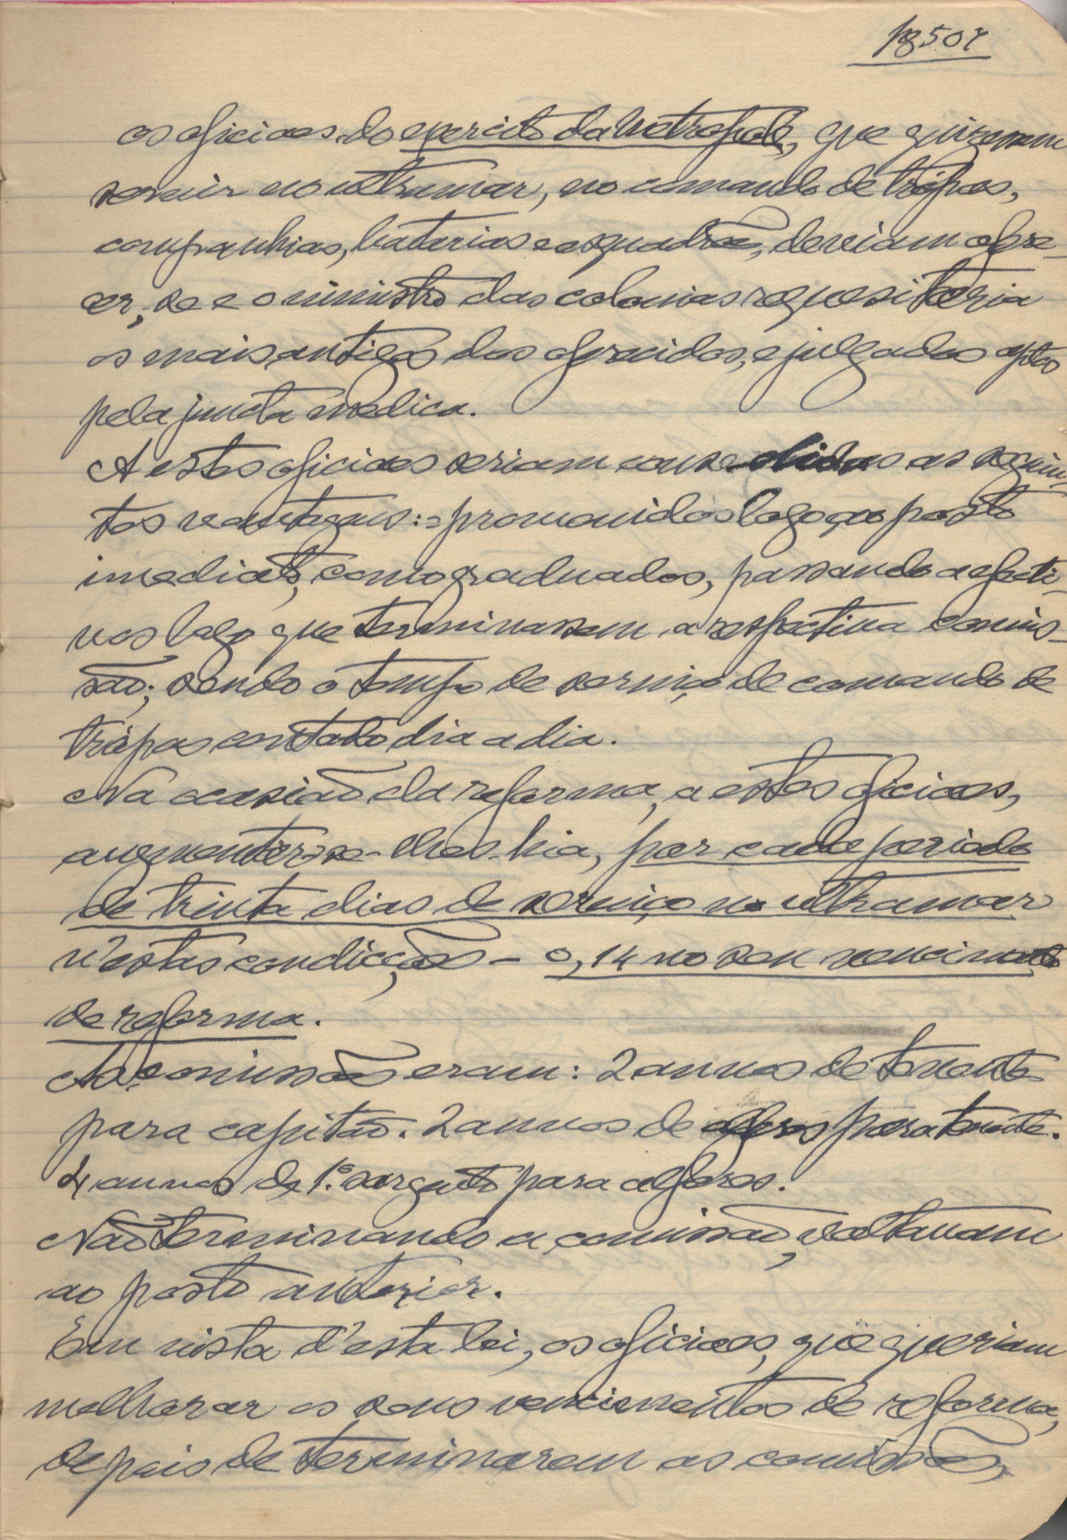 18507
os oficiaes do exercito da Metropole, que quizessem
servir no ultramar, no comando de trópas,
companhias, baterias e esquadrões, deviam ofre-
cer, se e o ministro das colonias requesitaria
os mais antigos dos ofrecidos, e julgados aptos
pela juncta medica.
A estes oficiaes seriam concedidas as seguin-
tes vantagens: promovidos logo ao posto
imediato, como graduados, passando a efecti-
vos logo que terminassem a respectiva comis-
são; sendo o tempo de serviço de comando de
trópas contado dia a dia.
Na ocasião da reforma, a estes oficiaes,
augmentar-se-lhes-hia, por cada periodo
de trinta dias de serviço no ultramar
n'estas condicções – 0,14 no seu vencimento
de reforma.
As comissões eram: 2 annos de tenente
para capitão. 2 annos de alferes para tenente.
4 annos de 1.º sargento para alferes.
Não terminando a comissão, voltavam
ao posto anterior.
Em vista d'esta lei, os oficiaes, que queriam
melhorar os seus vencimentos de reforma,
depois de terminarem as comissões,